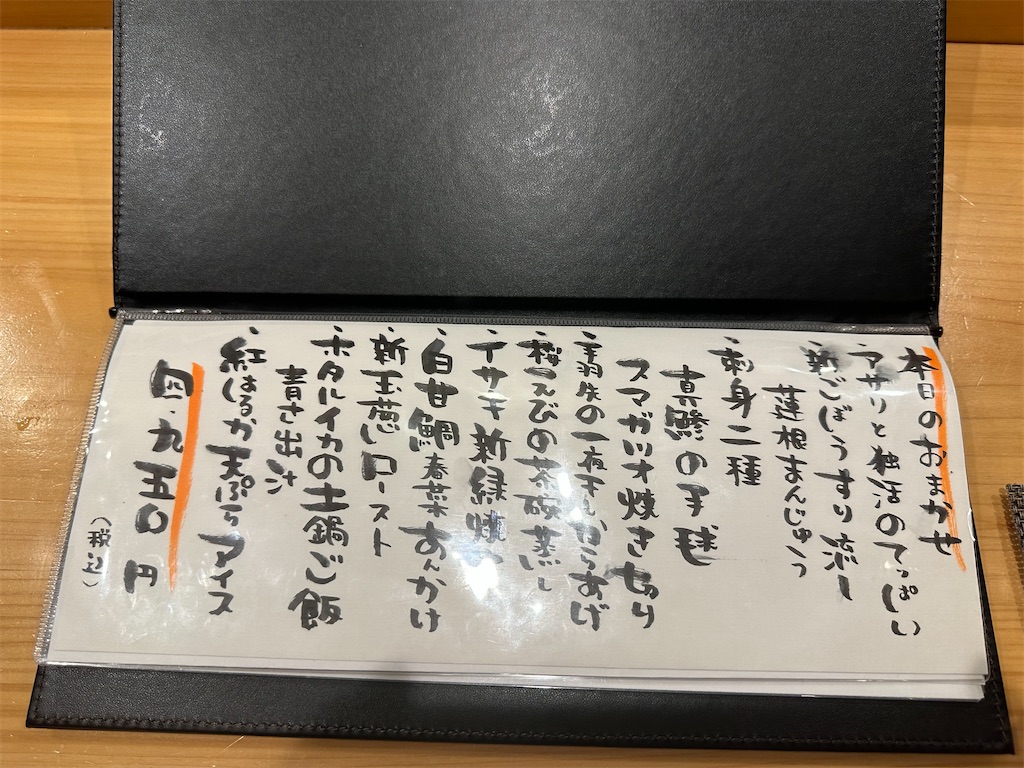 本日のおまかせ
・アサリと独活のてっぱい
・新ごぼうすり流し
蓮根まんじゅう
・刺身二種
真鯵の手毬
スマガツオ焼き切り
の一夜干しからあげ
・桜えびの茶碗蒸し
・イサキ新緑焼
・白甘鯛春菜あんかけ
・新玉葱ロースト
・ホタルイカの土鍋ご飯
青さ出汁
・紅はるか天ぷらアイス
四.九五〇円
(税込)